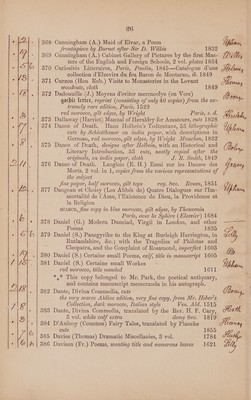 26
368 Cunningham (A.) Maid of Elvar, a Poem
frontispiece by Burnet after Sir D. Wilkie 1832
369 Cunningham (A.) Cabinet Gallery of Pictures by the first Masters
of the English and Foreign Schools, 2 vol. plates 1834
370 Curiosites Litteraires, Paris, Paulin, 1845—Catalogue d'une
collection d'Elzevirs du feu Baron de Montaran, ib. 1849
371 Curzon (Hon. Rob.) Visits to Monasteries in the Levant
woodcuts, cloth 1849
372 Dadouville (J.) Moyens d'eviter merencolye (en Vers)
gothic letter, reprint (consisting of only 40 copies) from the extremely
rare edition, Paris, 1529
red morocco, gilt edges, by Wright Paris, s. d.
373 Dallaway (Harriet) Manual of Heraldry for Amateurs, cuts 1828
374 Dance of Death. Hans Holbeins Todtentanz, 53 lithographic
cuts by Schlotthauer on india paper, with descriptions in
German, red morocco, gilt edges, by Wright München, 1832
375 Dance of Death, designs after Holbein, with an Historical and
Literary Introduction, 53 cuts, mostly copied after the
originals, on india paper, cloth J. R. Smith, 1849
376 Dance of Death. Langlois (E. H.) Essai sur les Danses des
Morts, 2 vol. in 1, copies from the various representations of
the subject
fine paper, half morocco, gilt tops roy. 8vo. Rouen, 1851
377 Dangeau et Choisy (Les Abbés de) Quatre Dialogues sur l'Immortalité
de l'Ame, l'Existence de Dieu, la Providence et
la Religion
SCARCE, fine copy in blue morocco, gilt edges, by Clemencin
Paris, avec la Sphère (1684)
378 Daniel (G.) Modern Dunciad, Virgil in London, and other
Poems 1835
379 Daniel (S.) Panegyrike to the King at Burleigh Harrington, in
Rutlandshire, &c.; with the Tragedies of Philotas and
Cleopatra, and the Complaint of Rosamond, imperfect 1603
380 Daniel (S.) Certaine small Poems, calf, title in manuscript 1605
381 Daniel (S.) Certaine small Workes
red morocco, title mended 1611
*** This copy belonged to Mr. Park, the poetical antiquary,
and contains manuscript memoranda in his autograph.
382 Dante, Divina Commedia, cuts
the very scarce Aldine edition, very fine copy, from Mr. Heber's
Collection, dark morocco, Italian style Ven. Ald. 1515
383 Dante, Divina Commedia, translated by the Rev. H. F. Cary,
3 vol. white calf extra demy 8vo. 1819
384 D'Aulnoy (Comtesse) Fairy Tales, translated by Planché
cuts 1855
385 Davies (Thomas) Dramatic Miscellanies, 3 vol. 1784
386 Davison (Fr.) Poems, wanting title and numerous leaves 1621